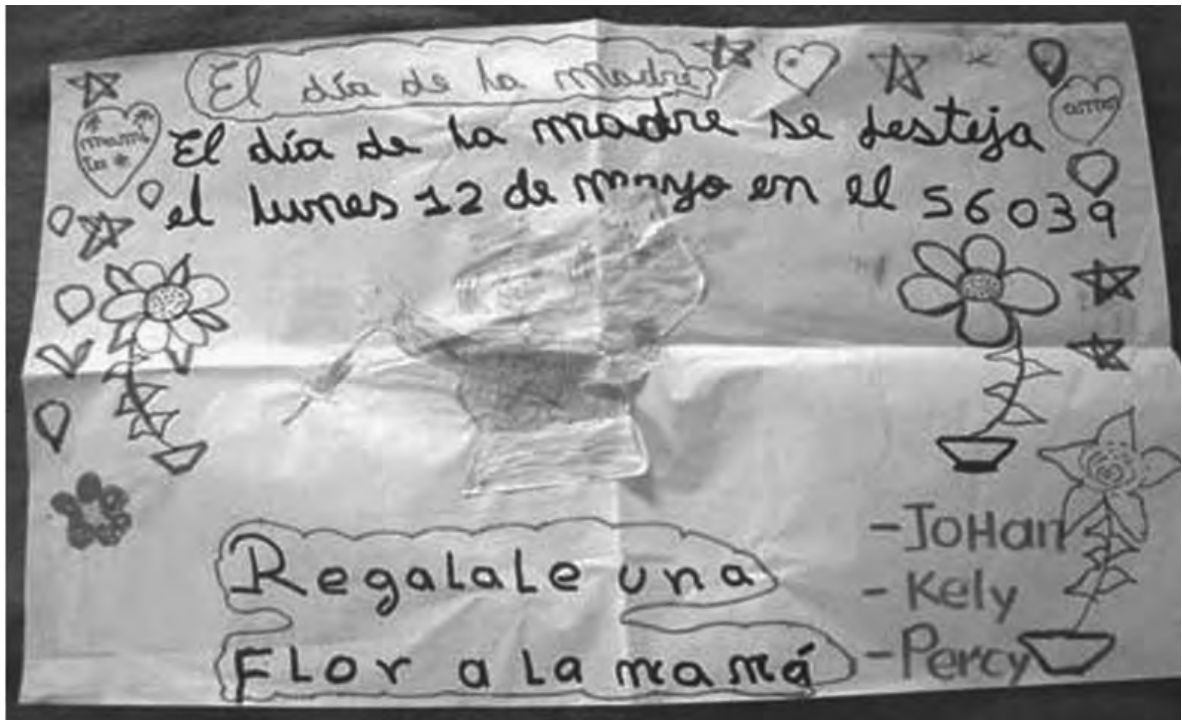 El día de la madre
El día de la madre se festeja
el lunes 12 de mayo en el 56039
mami
amor
Regalale una
Flor a la mamá
-JoHan
-Kely
-Percy